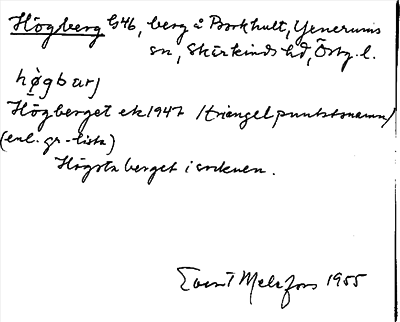 Högberg G4b, berg å Borkhult, Yxnerums
sn, Skärkinds hd, Östg. l.
hø̀gbarj
Högberget ek 1947 /triangelpunktsnamn/
(enl. gr-lista)
Högsta berget i socknen.
Evert Melefors 1955